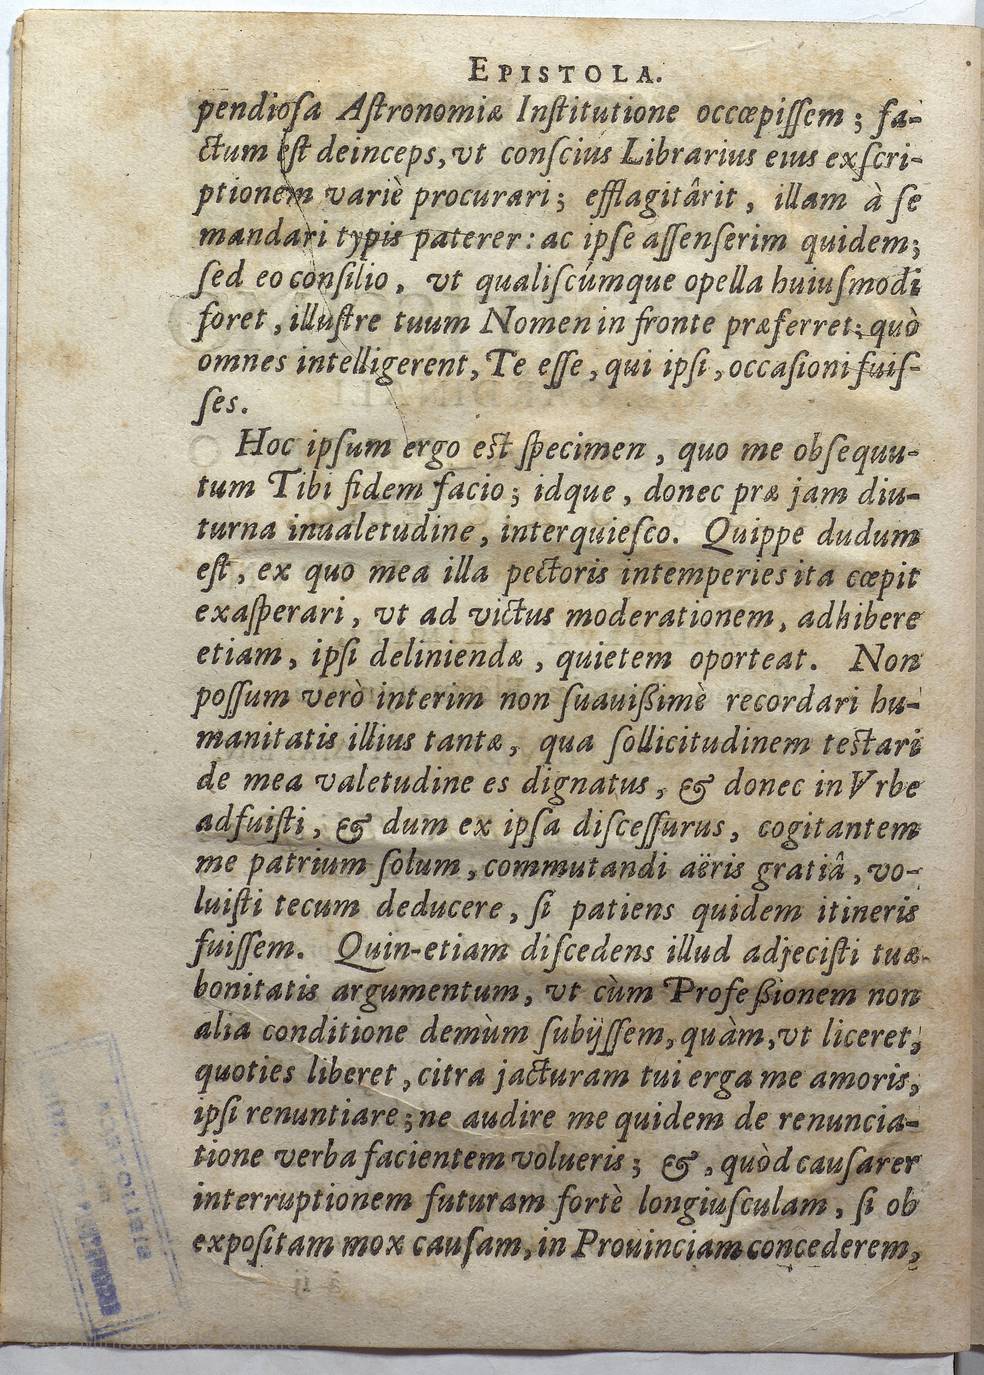 EPISTOLA.
pendioſa Aſtronomiæ Inſtitutione occœpiſſem; fa-
ctum eſt deinceps, vt conſcius Librarius eius exſcri-
ptionem variè procurari; efflagitârit, illam à ſe
mandari typis paterer: ac ipſe aſſenſerim quidem;
ſed eo conſilio, vt qualiſcúmque opella huiuſmodi
foret, illuſtre tuum Nomen in fronte præferret; quò
omnes intelligerent, Te eſſe, qui ipſi, occaſioni fuiſ-
ſes.
Hoc ipſum ergo eſt ſpecimen, quo me obſequu-
tum Tibi fidem facio; idque, donec præ jam diu-
turna inualetudine, interquieſco. Quippe dudum
eſt, ex quo mea illa pectoris intemperies ita cœpit
exaſperari, vt ad victus moderationem, adhibere
etiam, ipſi deliniendæ, quietem oporteat. Non
poſſum verò interim non ſuauißimè recordari hu-
manitatis illius tantæ, qua ſollicitudinem teſtari
de mea valetudine es dignatus, & donec in Vrbe
adfuiſti, & dum ex ipſa diſceſſurus, cogitantem
me patrium ſolum, commutandi aëris gratiâ, vo-
luiſti tecum deducere, ſi patiens quidem itineris
fuiſſem. Quin-etiam diſcedens illud adjeciſti tuæ
bonitatis argumentum, vt cùm Profeßionem non
alia conditione demùm ſubijſſem, quàm, vt liceret,
quoties liberet, citra jacturam tui erga me amoris,
ipſi renuntiare; ne audire me quidem de renuncia-
tione verba facientem volueris; &, quòd cauſarer
interruptionem futuram fortè longiuſculam, ſi ob
expoſitam mox cauſam, in Prouinciam concederem,